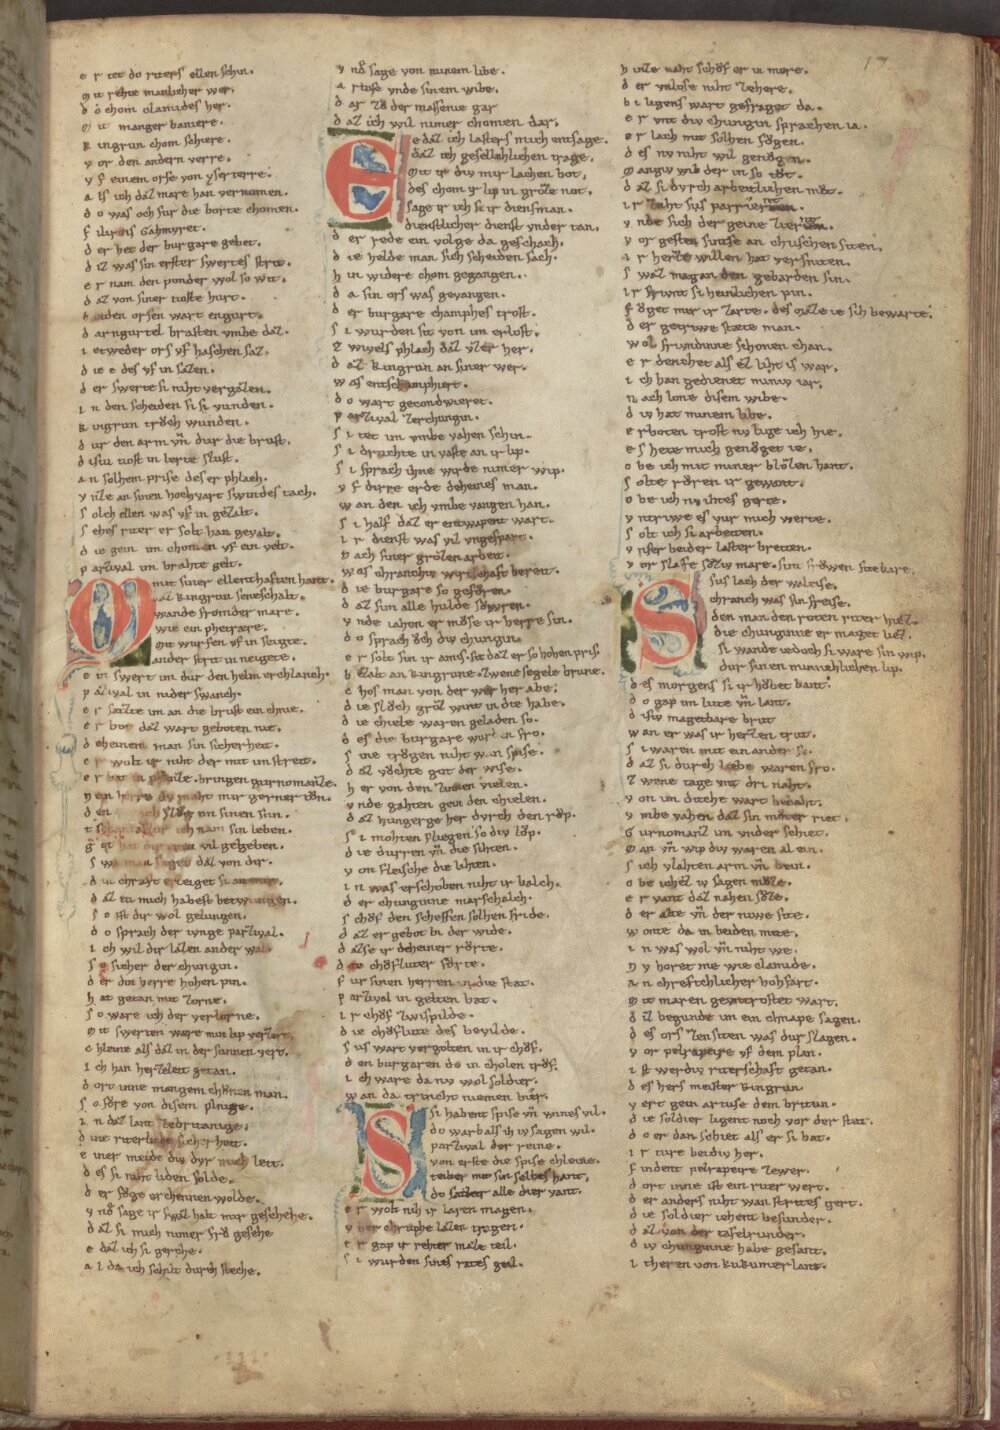 17
e r tet do riters ellen schin.
m it rehte manlicher wer.
d o chom clamides her.
m it manger baniere.
k ingrun chom schiere.
v or den andern verre.
v f einem orse von yserterre.
a ls ich daz mare han vernomen.
d o was och fur die borte chomen.
f illurois Gahmvret.
d er het der burgare gebet.
d iz was sin erster swertes strit.
e r nam den ponder wol so wit.
d az von siner tioste hurt.
b eiden orsen wart engurt.
d arngurtel brasten vmbe daz.
i etweder ors vf haschen saz.
d ie e des vf in sazen.
d er swerte si niht vergazen.
i n den scheiden si si vunden.
k ingrun trůch wunden.
d ur den arm vñ dur die brust.
d isiu tiost in lerte flust.
a n solhem prise des er phlach.
v nze an sinen hochvart swindes tach.
s olch ellen was vf in gezalt.
s ehes riter er solt han gevalt.
d ie gein im chomen vf ein velt.
p arzival im brahte gelt.
M mit siner ellenthaften hant.
daz kingrun seneschalt.
wande fromder mare.
wie ein phetrære.
mit wurfen vf in seigte.
ander strit in neigete.
e in swert im dur den helm erchlanch.
p arzival in nider swanch.
e r sazte im an die brust ein chnie.
e r bot daz wart geboten nie.
d eheinem man sin sicherheit.
e r wolt ir niht der mit im streit.
e r bat in phianze bringen gurnomanze.
n ein herre dv maht mir gerner tön.
d en ich slůg im sinen sůn.
t ich nam sin leben.
g ot hat dir vil gegeben.
s wa man saget daz von dir.
d in chraft erzeiget si an mir.
d az tu mich habest betwungen.
s o ist dir wol gelungen.
d o sprach der iunge parzival.
i ch wil dir lazen ander wal.
s o sicher der chungin.
d er din herre hohen pin.
h at getan mit zorne.
s o ware ich der verlorne.
m it swerten ware min lip verzert.
c hleine als daz in der sunnen vert.
i ch han herzeleit getan.
d ort inne mangem chůnen man.
s o fůre von disem plmge.
i n daz lant zebritanige.
d ine riterliche sicherheit.
e iner meide div dvr mich leit.
d es si niht liden solde.
d er fůge erchennen wolde.
v nd sage ir swaz halt mir geschehe.
d az si mich nimer fro gesehe
e daz ich si gerche.
a l da ich schilt durch steche.
v nd sage von minem libe.
a rtuse vnde sinem wibe.
d ar zů der massenie gar
d az ich wil nimer chomen dar.
E e daz ich lasters mich entsage.
daz ich gesellchlichen trage.
mit ir div mir lachen bot,
des chom ir lip in groze not.
sage ir ich si ir diensman.
dienstlicher dienst vnder tan.
d er rede ein volge da geschach.
d ie helde man sich scheiden sach.
h in widere chom gegangen.
d a sin ors was gevangen.
d er burgare champhes trost.
s i wurden sit von im erlost.
z wivels phlach daz vzer her.
d az kingrun an siner wer.
w as entschamphiert.
d o wart gecondwieret.
p arzival zerchungin.
s i tet im vmbe vahen schin.
s i druchte in vaste an ir lip.
s i sprach ihne wirde nimer wip.
v f dirre erde deheines man.
w an den ich vmbe vangen han.
s i half daz er entwapent wart.
i r dienst was vil vngespart.
n ach siner grozen arbeit.
w as chranchiv wirtschaft bereit.
d ie burgare so gefůren.
d az sin alle hulde sůwren.
v nde iahen er můse ir herre sin.
d o sprach och div chungin.
e r solt sin ir amis sit daz er so hohen pris.
b ezalt an kingrune. zwene segele brune.
c hos man von der wer her abe.
d ie slůch groz wint in die habe.
d ie chiele waren geladen so.
d es die burgare wurden fro.
s ine trůgen niht wan spise.
d az vůchte got der wise.
h er von den zinnen vielen.
v nde gahten gein den chielen.
d az hungerge her dvrch den rop.
s i mohten fliegen so div lop.
d ie durren vñ die sihten.
v on fleische die lihten.
i n was erschoben niht ir balch.
d er chunginne marschalch.
s chůf den scheffen solhen fride.
d az er gebot bi der wide.
d az se ir deheiner růrte.
d ie choflute̍r fůrte.
f ur sinen herren in die stat.
p arzival in gelten bat.
i r chof zwispilde.
d ie choflute des bevilde.
s us wart vergolten in ir chof.
d en burgaren do in cholen trof.
i ch ware da nv wol soldier.
w an da trinchet niemen bier.
S si habent spise vñ wines vil.
do warb als ih iv sagen wil.
parzival der reine.
von erste die spise chleine.
teilter mit sin selbes hant.
do sazter alle dier vant.
e r wolt niht ir laren magen.
v ber chruphe lazen tragen.
e r gap ir rehter maze teil.
s i wurden sines rates geil.
h inze naht schůf er in mere.
d er vnlose niht zehere.
b i ligens wart gefraget da.
e r vnt div chungin sprachen ia.
e r lach mit solhen fůgen.
d es nv niht wil genůgen.
m angiv wib der in so tůt.
d az si dvrch arbeitlichen můt.
i r zuht sus parrieren.
v nde sich der geine zieren.
v or gesten sint se an chuschen siten.
i r herze willen hat versniten.
s waz mag an den gebarden sin.
i r frivnt si heinlichen pin.
f ůget mir ir zarte. des maze ie sih bewarte.
d er getriwe stæte man.
w ol frivndinne schonen chan.
e r denchet als ez liht is war,
i ch han gedienet miniv iar.
n ach lone disem wibe.
d iv hat minem libe.
e rboten trost nv lige ich hie.
e s hete mich genůget ie.
o be ich mit miner blozen hant.
s olte růren ir gewant.
o be ich nv ihtes gerte.
v ntriwe es vur mich werte.
s olt ich si arbeiten.
v nser beider laster breiten.
v or slaffe sůziv mare. sint frowen site bære.
S sus lach der waleise.
chranch was sin freise.
den man den roten riter hiez.
die chunginne er maget liez.
si wande iedoch si ware sin wip.
dur sinen minnechlichen lip.
d es morgens si ir hobet bant.
d o gap im lute vñ lant.
d isiv magetbare brut
w an er was ir herzen trut.
s i waren mit ein ander so.
d az si durch liebe waren fro.
z wene tage vnt dri naht.
v on im dicche wart bedaht.
v mbe vahen daz sin můter riet.
g urnomanz im vnder schiet.
m an vñ wip div waren al ein.
s ich vlahten arm vñ bein.
o be ichz iv sagen můze.
e r vant daz nahen sůze.
d er alte vñ der niwe site.
w onte da in beiden mite.
i n was wol vñ niht we.
n v horet me wie clamide.
a n chreftechlicher hohfart.
m it maren geuntrostet wart.
d iz begunde im ein chnape sagen.
d es ors zensiten was durslagen.
v or pelrapeire vf dem plan.
i st werdiv riterschaft getan.
d es hers meister kingrun
v ert gein artuse dem britun.
d ie soldier ligent noch vor der stat.
d o er dan schiet als er si bat.
i r ture beidiv her.
f indent pelrapeire zewer.
d ort inne ist ein riter wert.
d er anders niht wan strites gert.
d ie soldier iehent besunder.
d az von der tafelrunder.
d iv chunginne habe gesant.
i theren von kukumerlant.